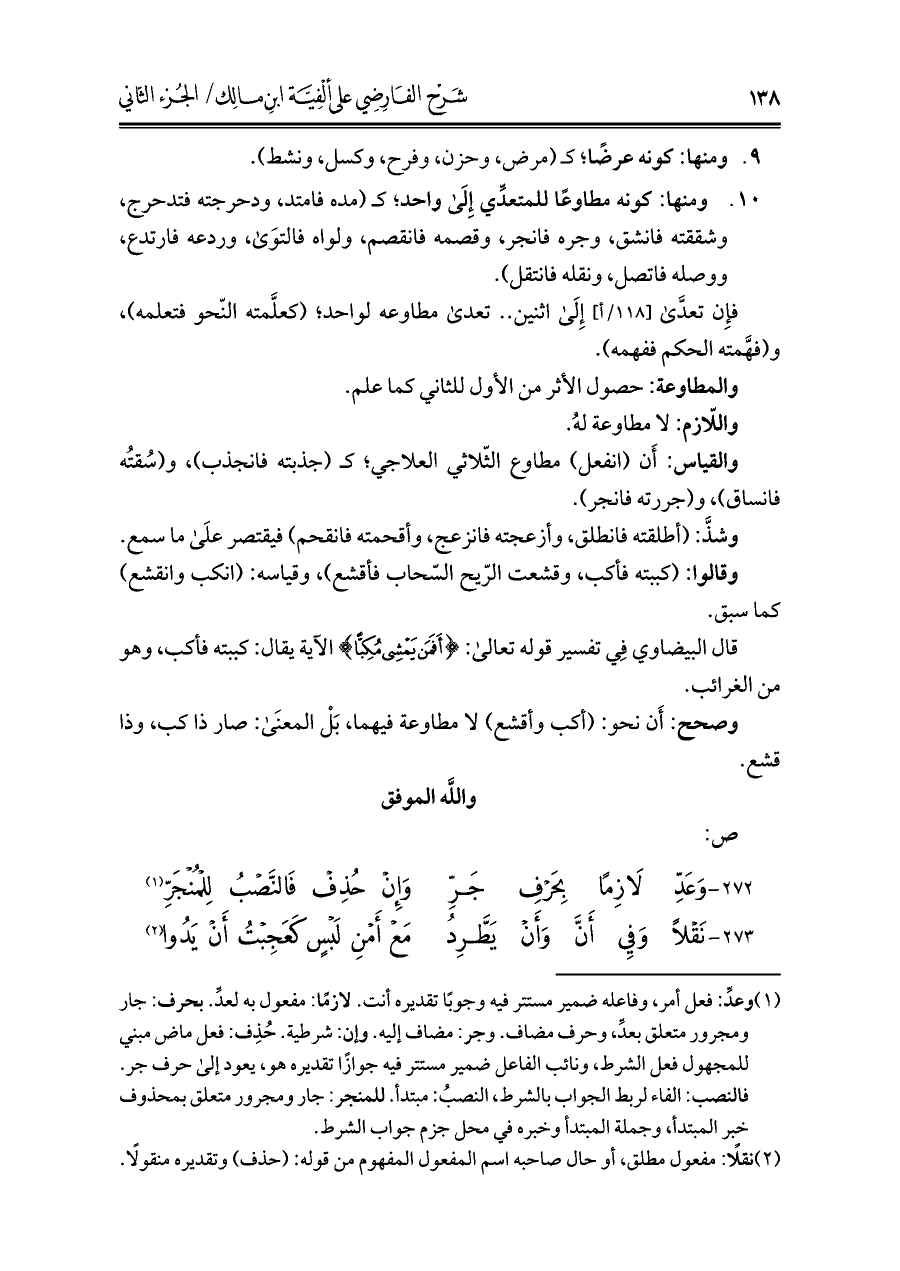 ١٣٨ شرح الفارضي على ألفية ابن مالك/ الجزء الثاني
٩. ومنها: كونه عرضًا؛ كـ (مرض، وحزن، وفرح، وكسل، ونشط).
١٠. ومنها: كونه مطاوعًا للمتعدِّي إِلَىٰ واحد؛ كـ (مده فامتد، ودحرجته فتدحرج،
وشققته فانشق، وجره فانجر، وقصمه فانقصم، ولواه فالتوَىٰ، وردعه فارتدع،
ووصله فاتصل، ونقله فانتقل).
فإِن تعدَّىٰ [١١٨/أ] إِلَىٰ اثنين.. تعدىٰ مطاوعه لواحد؛ (كعلَّمته النّحو فتعلمه)،
و(فهَّمته الحكم ففهمه).
والمطاوعة: حصول الأثر من الأول للثاني كما علم.
واللّازم: لا مطاوعة لهُ.
والقياس: أَن (انفعل) مطاوع الثّلاثي العلاجي؛ كـ (جذبته فانجذب)، و(سُقتُه
فانساق)، و(جررته فانجر).
وشذَّ: (أطلقته فانطلق، وأزعجته فانزعج، وأقحمته فانقحم) فيقتصر علَىٰ ما سمع.
وقالوا: (كببته فأكب، وقشعت الرّيح السّحاب فأقشع)، وقياسه: (انكب وانقشع)
كما سبق.
قال البيضاوي فِي تفسير قوله تعالىٰ: ﴿أَفَمَن يَمْشِى مُكِبًّا﴾ الآية يقال: كببته فأكب، وهو
من الغرائب.
وصحح: أَن نحو: (أكب وأقشع) لا مطاوعة فيهما، بَلْ المعنَىٰ: صار ذا كب، وذا
قشع.
واللَّه الموفق
ص:
٢٧٢- وَعَدِّ لَازِمًا بِحَرْفِ جَـرِّ وَإِنْ حُذِفْ فَالنَّصْبُ لِلْمُنْجَرِّ(١)
٢٧٣- نَقْلاً وَفِي أَنَّ وَأَنْ يَطَّـرِدُ مَعْ أَمْنِ لَبْسٍ كَعَجِبْتُ أَنْ يَدُوا(٢)
(١) وعدِّ: فعل أمر، وفاعله ضمير مستتر فيه وجوبًا تقديره أنت. لازمًا: مفعول به لعدِّ. بحرف: جار
ومجرور متعلق بعدِّ، وحرف مضاف. وجر: مضاف إليه. وإن: شرطية. حُذِف: فعل ماض مبني
للمجهول فعل الشرط، ونائب الفاعل ضمير مستتر فيه جوازًا تقديره هو، يعود إلىٰ حرف جر.
فالنصب: الفاء لربط الجواب بالشرط، النصبُ: مبتدأ. للمنجر: جار ومجرور متعلق بمحذوف
خبر المبتدأ، وجملة المبتدأ وخبره في محل جزم جواب الشرط.
(٢) نقلًا: مفعول مطلق، أو حال صاحبه اسم المفعول المفهوم من قوله: (حذف) وتقديره منقولًا.